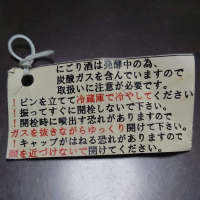 にごり酒は発酵中の為、
炭酸ガスを含んでいますので
取扱いに注意が必要です。
！ビンを立てて冷蔵庫で冷やしてください
！振ってすぐに開栓しないで下さい。
！開栓時に噴出す恐れがありますので
ガスを抜きながらゆっくり開けて下さい。
！キャップがはねる恐れがありますので
顔を近づけないで開けてください。